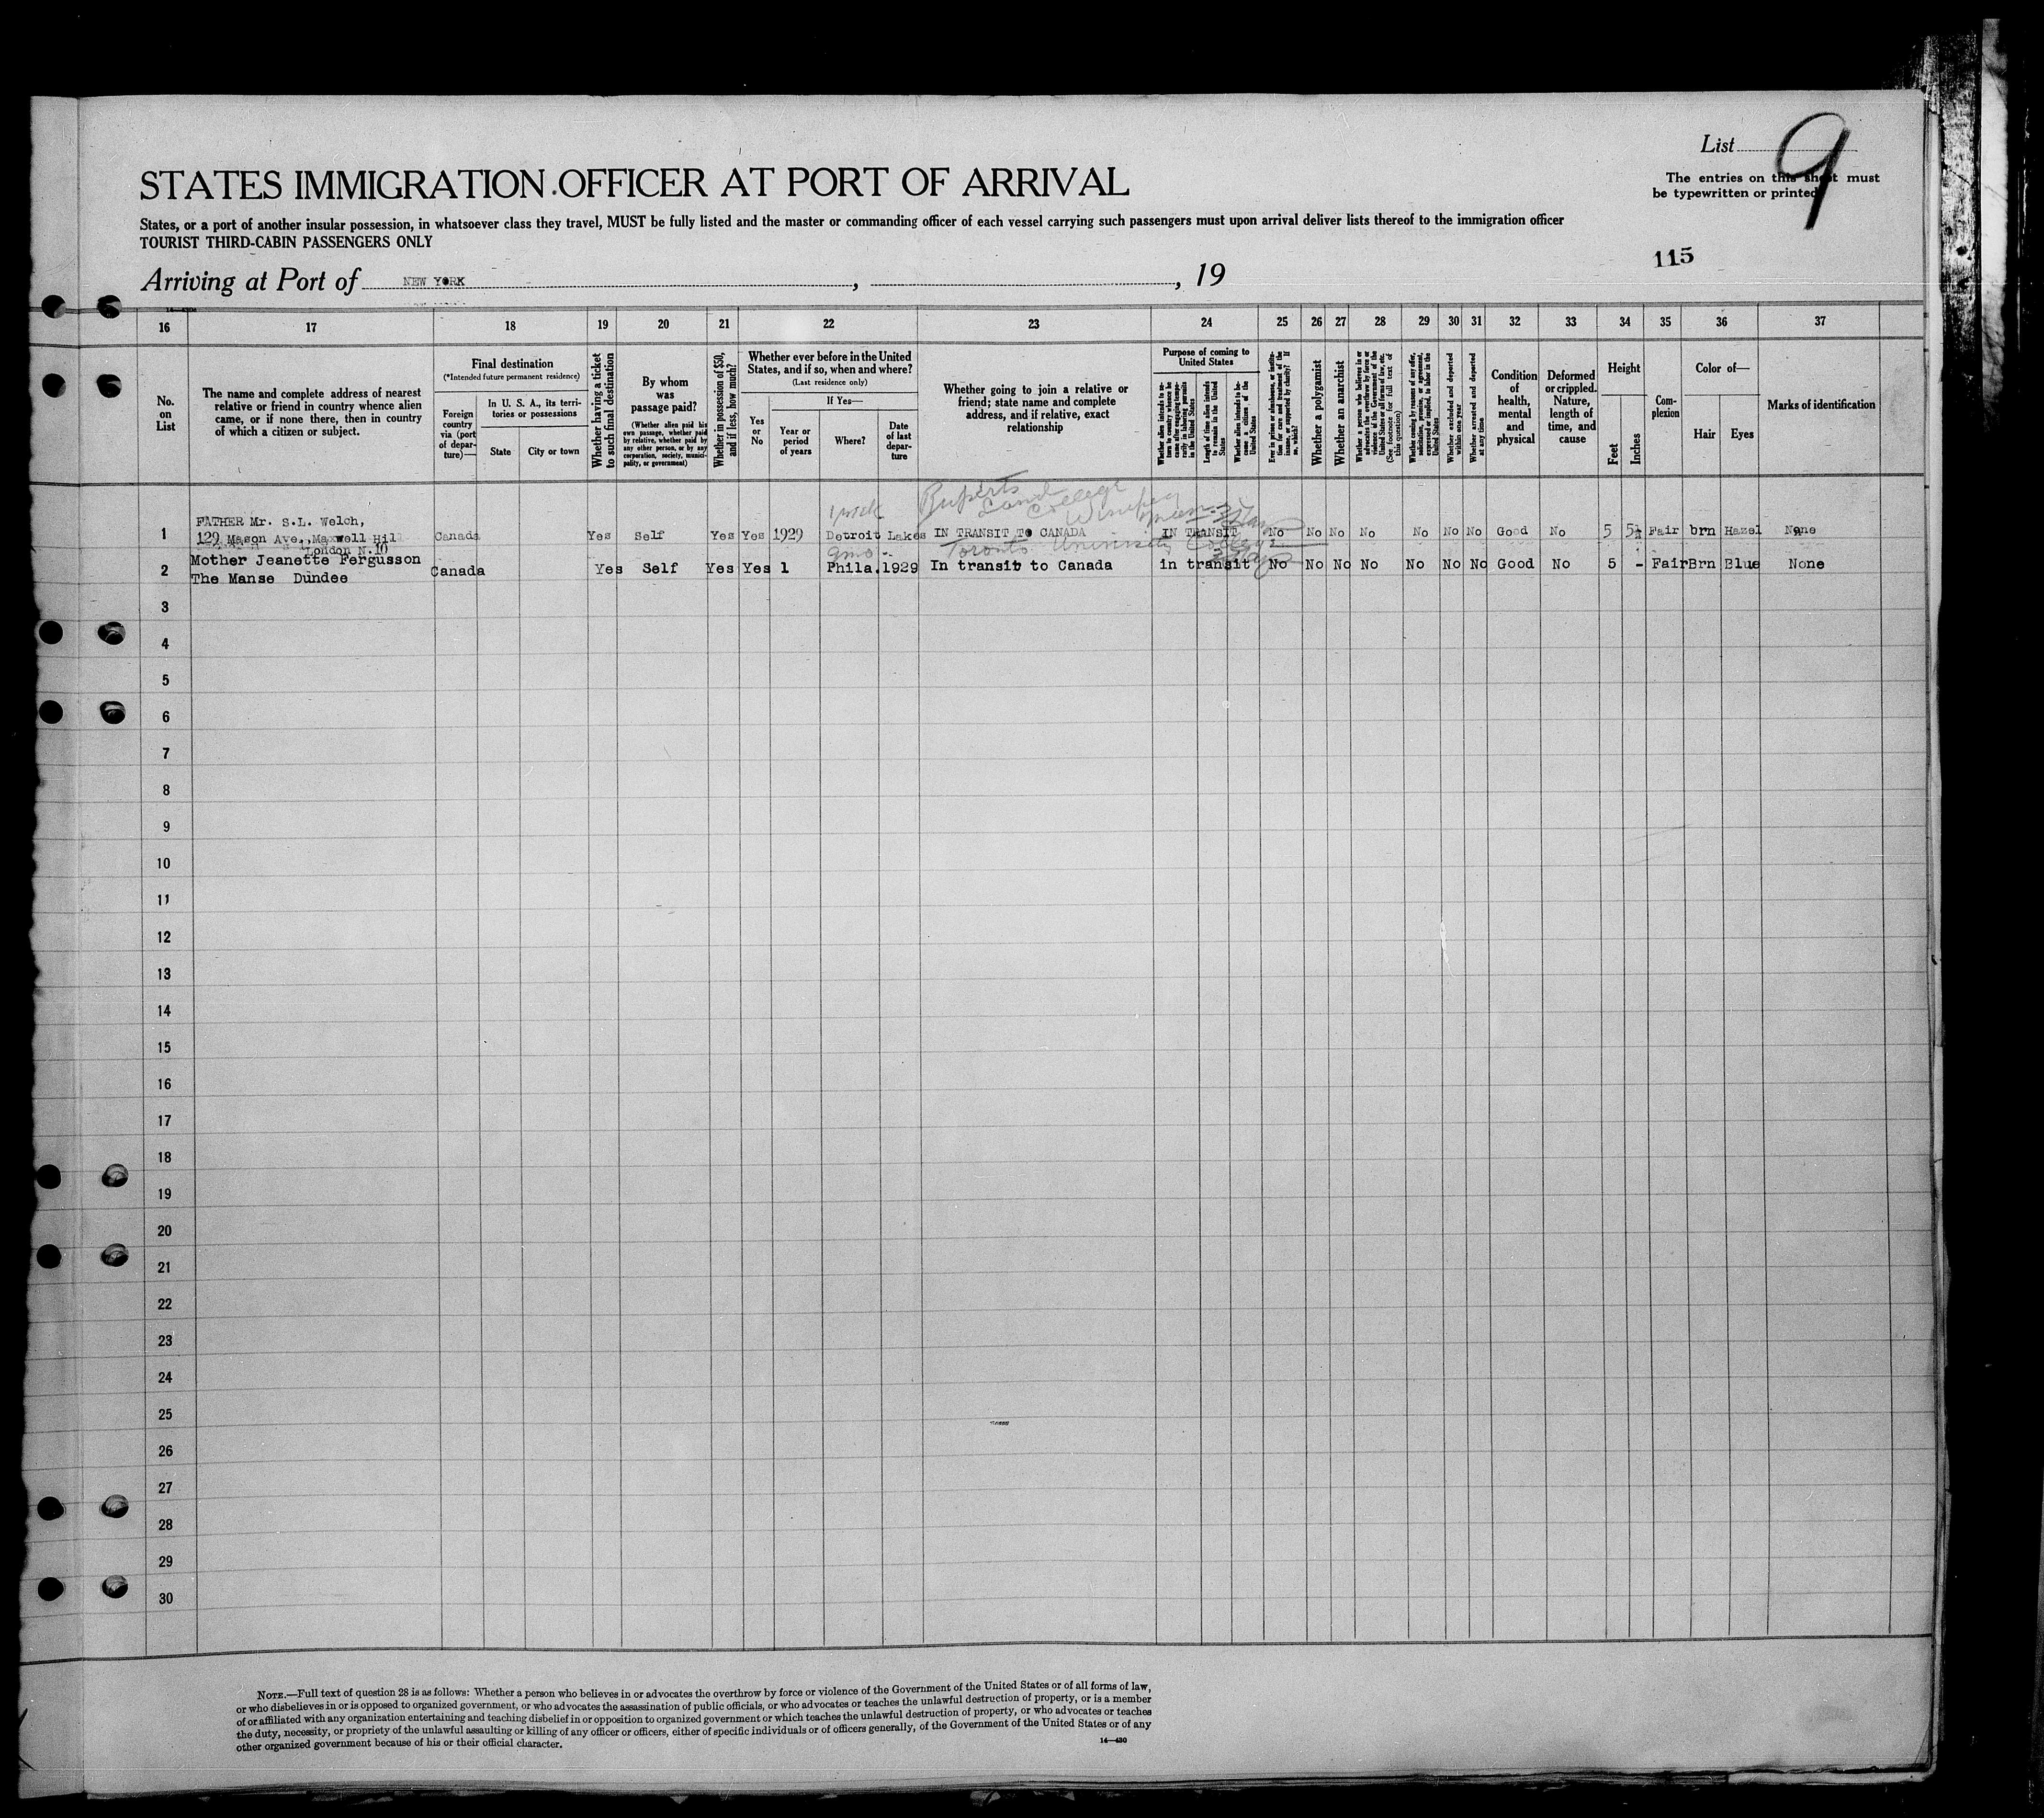 List 9
The entries on this sheet must
be typewritten or printed
STATES IMMIGRATION OFFICER AT PORT OF ARRIVAL
States, or a port of another insular possession, in whatsoever class they travel, MUST be fully listed and the master or commanding officer of each vessel carrying such passengers must upon arrival deliver lists thereof to the immigration officer
TOURIST THIRD-CABIN PASSENGERS ONLY
115
Arriving at Port of NEW YORK , , 19
16 17 18 19 20 21 22 23 24 25 26 27 28 29 30 31 32 33 34 35 36 37
No.
on
List
The name and complete address of nearest
relative or friend in country whence alien
came, or if none there, then in country
of which a citizen or subject.
Final destination
(*Intended future permanent residence)
Foreign
country
via (port
of depar-
ture)—
In U. S. A., its terri-
tories or possessions
State
City or town
Whether having a ticket
to such final destination
By whom
was
passage paid?
(Whether alien paid his
own passage, whether paid
by relative, whether paid by
any other person, or by any
corporation, society, munici-
pality, or government)
Whether in possession of $50,
and if less, how much?
Whether ever before in the United
States, and if so, when and where?
(Last residence only)
Yes
or
No
If Yes—
Year or
period
of years
Where?
Date
of last
depar-
ture
Whether going to join a relative or
friend; state name and complete
address, and if relative, exact
relationship
Purpose of coming to
United States
Whether alien intends to re-
turn to country whence he
came after engaging tempo-
rarily in laboring pursuits
in the United States
Length of time alien intends
to remain in the United
States
Whether alien intends to be-
come a citizen of the
United States
Ever in prison or almshouse, or institu-
tion for care and treatment of the
insane, or supported by charity? If
so, which?
Whether a polygamist
Whether an anarchist
Whether a person who believes in or
advocates the overthrow by force or
violence of the Government of the
United States or all forms of law, etc.
(See footnote for full text of
this question)
Whether coming by reason of any offer,
solicitation, promise, or agreement,
expressed or implied, to labor in the
United States
Whether excluded and deported
within one year
Whether arrested and deported
at any time
Condition
of
health,
mental
and
physical
Deformed
or crippled.
Nature,
length of
time, and
cause
Height
Feet
Inches
Com-
plexion
Color of—
Hair
Eyes
Marks of identification
Ruperts
Land College
Winnipeg
1 wk
1 FATHER Mr. S.L. Welch,
129 Mason Ave. Maxwell Hil
London N.10
Canada Yes Self Yes Yes 1929 Detroit Lakes IN TRANSIT TO CANADA IN TRANSIT No No No No No No No Good No 5 5½ Fair brn Hazel None
9mo Toronto University College
2 Mother Jeanette Fergusson
The Manse Dundee
Canada Yes Self Yes Yes 1 Phila. 1929 In transit to Canada in transit No No No No No No No Good No 5 - Fair Brn Blue None
3
4
5
6
7
8
9
10
11
12
13
14
15
16
17
18
19
20
21
22
23
24
25
26
27
28
29
30
NOTE.—Full text of question 28 is as follows: Whether a person who believes in or advocates the overthrow by force or violence of the Government of the United States or of all forms of law,
or who disbelieves in or is opposed to organized government, or who advocates the assassination of public officials, or who advocates or teaches the unlawful destruction of property, or is a member
of or affiliated with any organization entertaining and teaching disbelief in or opposition to organized government or which teaches the unlawful destruction of property, or who advocates or teaches
the duty, necessity, or propriety of the unlawful assaulting or killing of any officer or officers, either of specific individuals or of officers generally, of the Government of the United States or of any
other organized government because of his or their official character.
14—430